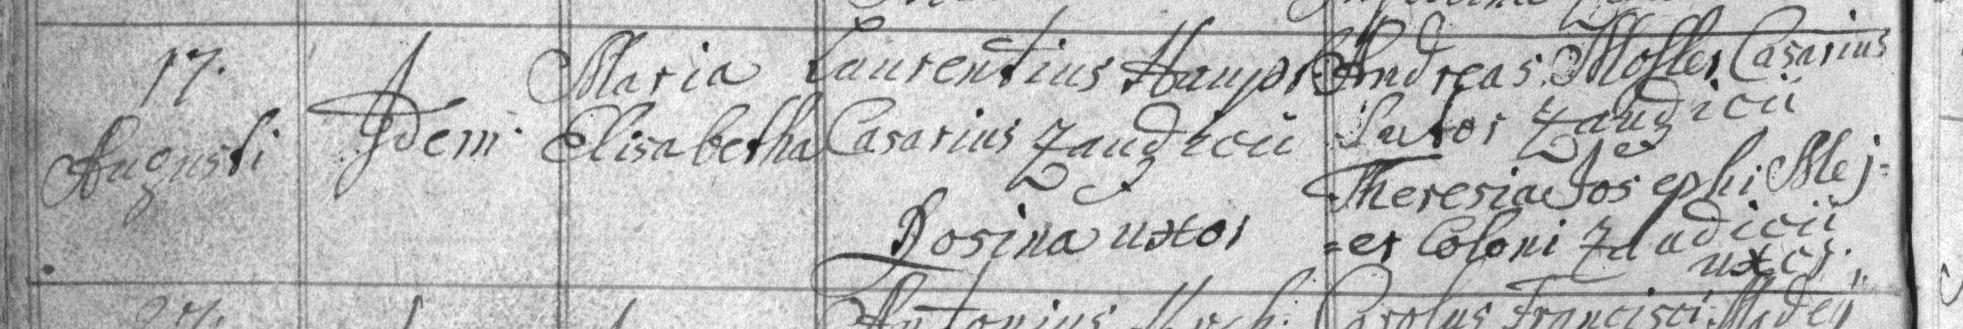 17.
Augusti
Idem
Maria
Elisabetha
Laurentius Haupt
Casarius Zaudicii
Rosina uxor
Andreas Mosler Casarius
Sutor Zaudicii
Theresia Josephi Mej-
=er Coloni Zaudicii
uxor.
Antonius
Carolus Francisci